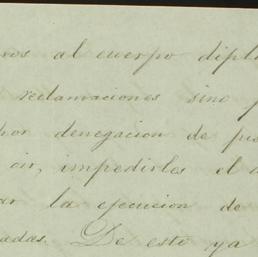 ros al cuerpo dipl
reclamaciones sino p
por denegacion de
oir, impedirles el
ar la ejecucion de
adas. De esto ya